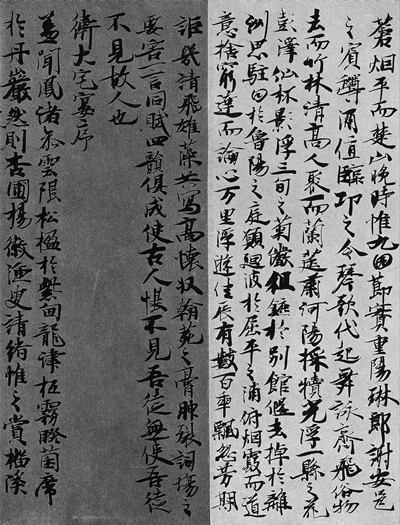 蒼烟平而楚山晚時惟九日節實重陽琳郎謝安邑
之賓罇酒值臨邛之令琴歌代起舞詠齊飛俗物
去而竹林清高人聚而蘭筵肅河陽採犢光浮一縣之花
彭澤仙杯影浮三旬之菊儼徂鑣於別館偃去棹於離
洲思駐日於魯陽之庭願廻波於屈平之浦俯烟霞而道
意捨窮達而論心万里浮遊佳辰有數百年飄忽芳期
詎幾請飛雄藻共寫高懷收翰苑之膏腴裂詞場之
要害一言同賦四韻俱成使古人恨不見吾徒無使吾徒
不見故人也
衛大宅宴序
蓋聞鳳渚参雲隕松楹於紫甸龍津抵霧睽茵席
於丹巖然則杏圃揚徽叟請緒惟之賞